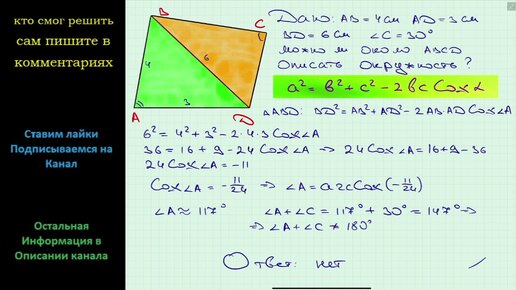 кто смог решить
сам пишите в
комментариях
Ставим лайки
Подписываемся на
Канал
Остальная
Информация в
Описании канала
B
C
4
6
3
A
D
Дано: AB = 4 см AD = 3 см
BD = 6 см ∠C = 30°
можно ли около ABCD
описать окружность?
a² = b² + c² - 2bc Cos α
△ABD: BD² = AB² + AD² - 2AB·AD Cos∠A
6² = 4² + 3² - 2·4·3 Cos∠A
36 = 16 + 9 - 24 Cos∠A ⇒ 24 Cos∠A = 16 + 9 - 36
24 Cos∠A = -11
Cos∠A = -11/24 ⇒ ∠A = arcCos(-11/24)
∠A ≈ 117° ∠A + ∠C = 117° + 30° = 147° ⇒
⇒ ∠A + ∠C ≠ 180°
Ответ: нет